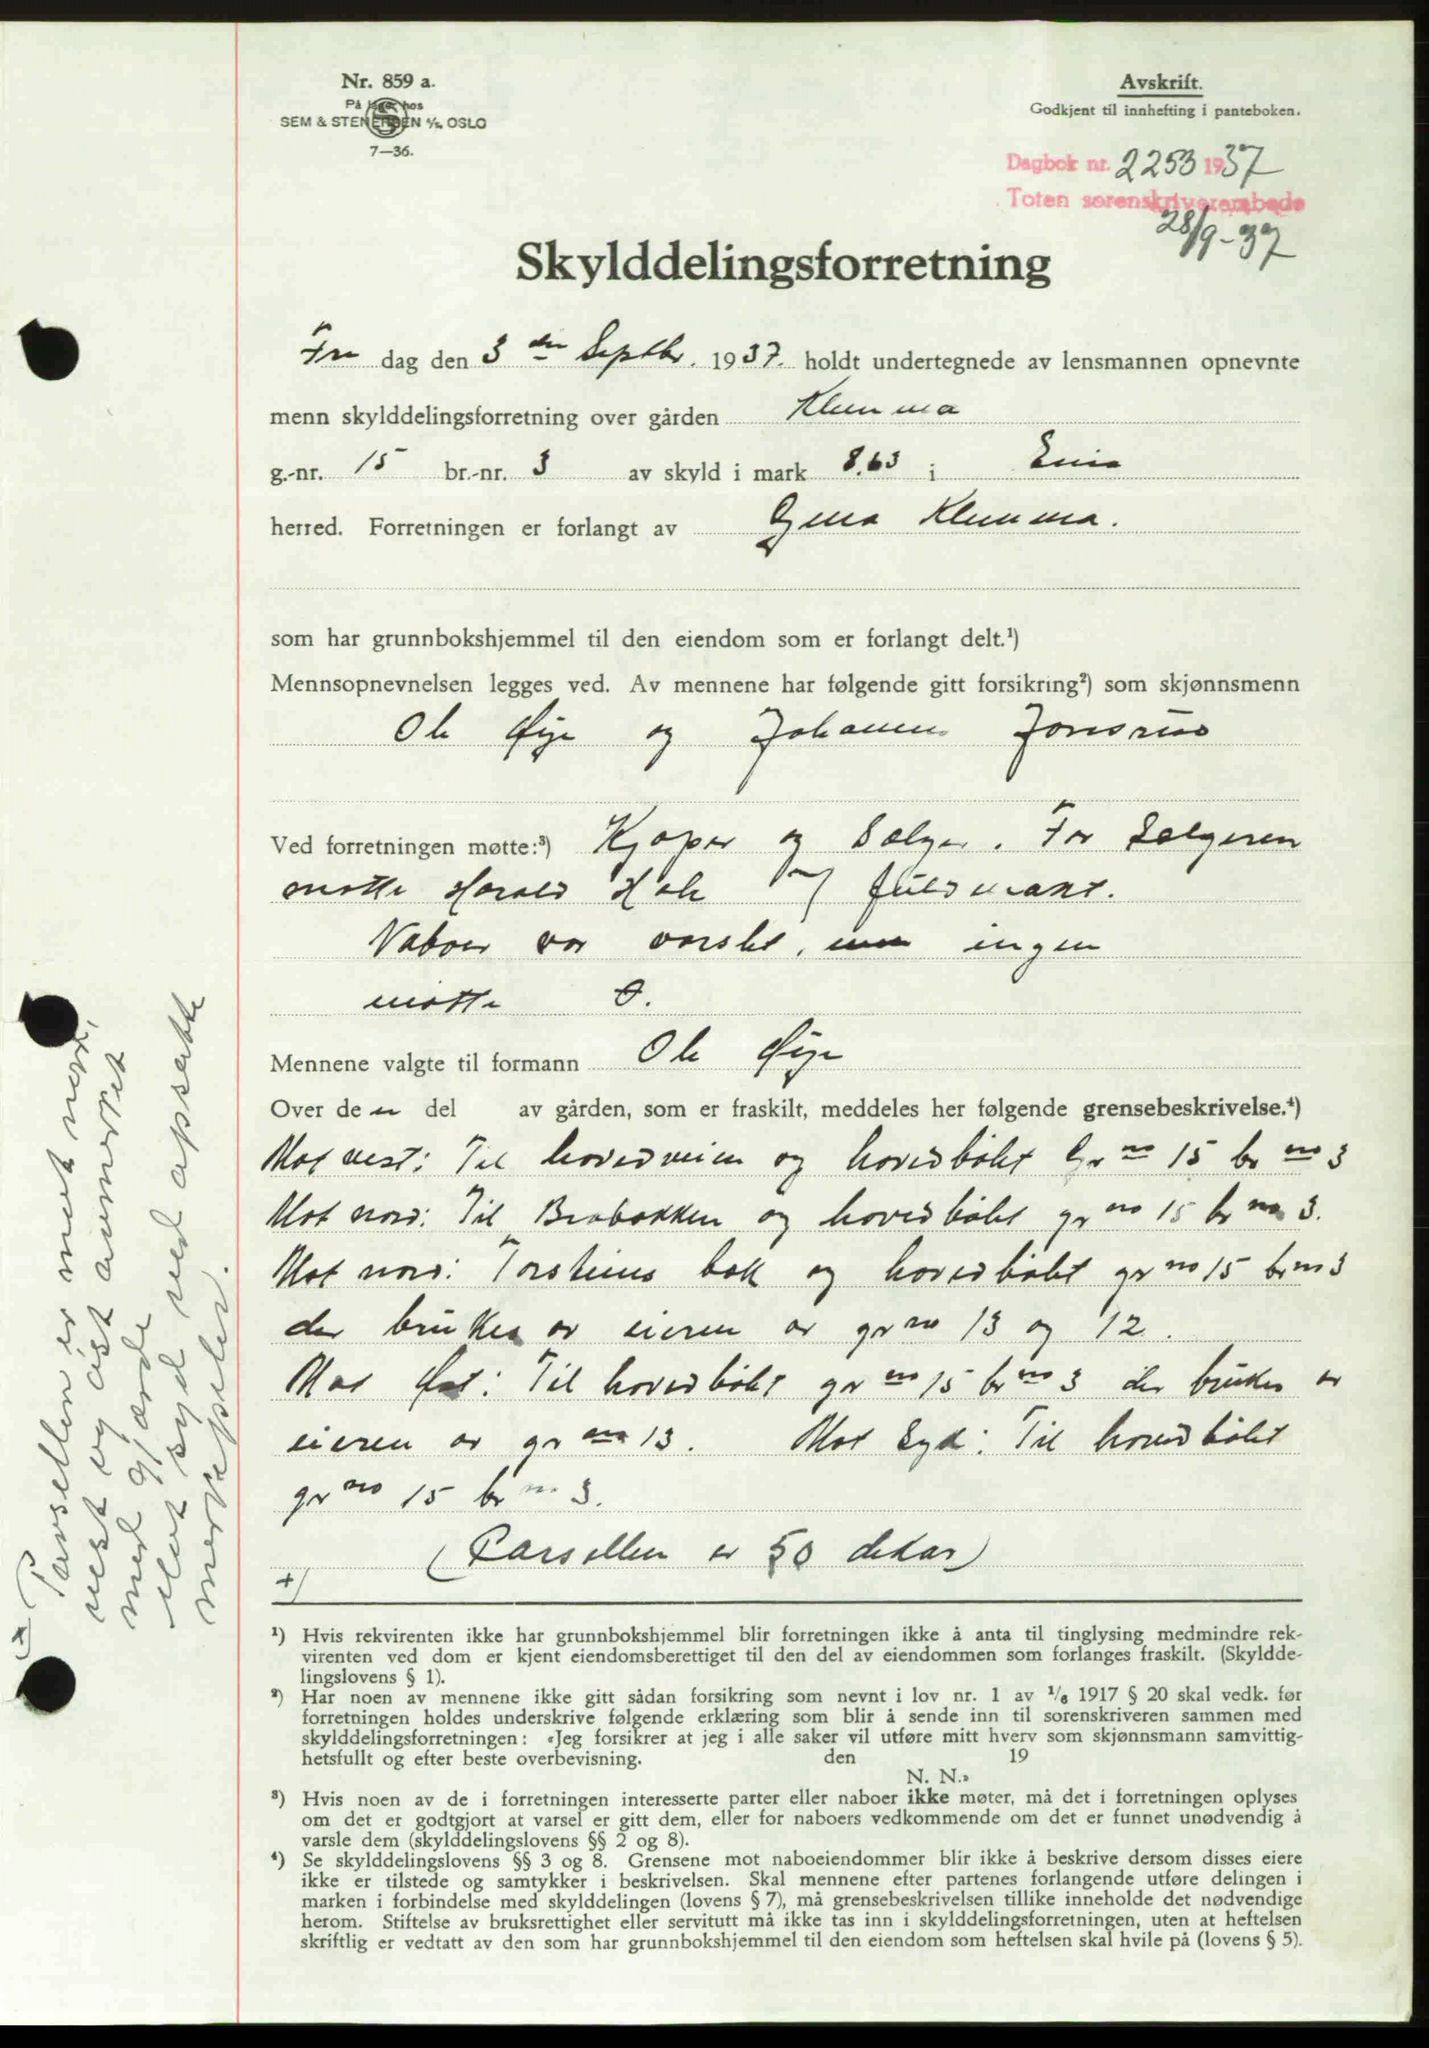 Nr. 859 a.
På lager hos
SEM & STENERSEN A/S, OSLO
7—36.
Avskrift.
Godkjent til innhefting i panteboken.
Dagbok nr. 2253 1937
Toten sorenskriverembede
28/9-37
Skylddelingsforretning
Fre dag den 3 die Septbr. 1937. holdt undertegnede av lensmannen opnevnte
menn skylddelingsforretning over gården Klemma
g.-nr. 15 br.-nr. 3 av skyld i mark 8.63 i Eina
herred. Forretningen er forlangt av Gina Klemma.
som har grunnbokshjemmel til den eiendom som er forlangt delt.¹)
Mennsopnevnelsen legges ved. Av mennene har følgende gitt forsikring²) som skjønnsmenn
Ole Øye og Johannes Jonsrud
Ved forretningen møtte:³) Kjøper og Selger. For Selgeren
møtte Harald Hole m/ fuldmakt.
Naboer var varslet, men ingen
møtte
Mennene valgte til formann Ole Øye
Over de n del av gården, som er fraskilt, meddeles her følgende grensebeskrivelse.⁴)
Mot vest: Til hovedveien og hovedbølet Gr no 15 br no 3
Mot nord: Til Brobakken og hovedbølet gr no 15 br no 3.
Mot nord: Torsteins bek og hovedbølet gr no 15 br no 3
der brukes av eieren av gr no 13 og 12.
Mot Øst: Til hovedbølet gr no 15 br no 3 der brukes av
eieren av gr no 13. Mot Syd: Til hovedbølet
gr no 15 br no 3.
(Parsellen er 50 dekar)
+)
+) Parsellen er mot nord,
vest og øst anmerket
med gjerde
Mot syd ved opsatte
merkepeler.
¹) Hvis rekvirenten ikke har grunnbokshjemmel blir forretningen ikke å anta til tinglysing medmindre rek-
virenten ved dom er kjent eiendomsberettiget til den del av eiendommen som forlanges fraskilt. (Skyldde-
lingslovens § 1).
²) Har noen av mennene ikke gitt sådan forsikring som nevnt i lov nr. 1 av ¹/₆ 1917 § 20 skal vedk. før
forretningen holdes underskrive følgende erklæring som blir å sende inn til sorenskriveren sammen med
skylddelingsforretningen: «Jeg forsikrer at jeg i alle saker vil utføre mitt hverv som skjønnsmann samvittig-
hetsfullt og efter beste overbevisning. den 19
N. N.»
³) Hvis noen av de i forretningen interesserte parter eller naboer ikke møter, må det i forretningen oplyses
om det er godtgjort at varsel er gitt dem, eller for naboers vedkommende om det er funnet unødvendig å
varsle dem (skylddelingslovens §§ 2 og 8).
⁴) Se skylddelingslovens §§ 3 og 8. Grensene mot naboeiendommer blir ikke å beskrive dersom disses eiere
ikke er tilstede og samtykker i beskrivelsen. Skal mennene efter partenes forlangende utføre delingen i
marken i forbindelse med skylddelingen (lovens § 7), må grensebeskrivelsen tillike inneholde det nødvendige
herom. Stiftelse av bruksrettighet eller servitutt må ikke tas inn i skylddelingsforretningen, uten at heftelsen
skriftlig er vedtatt av den som har grunnbokshjemmel til den eiendom som heftelsen skal hvile på (lovens § 5).